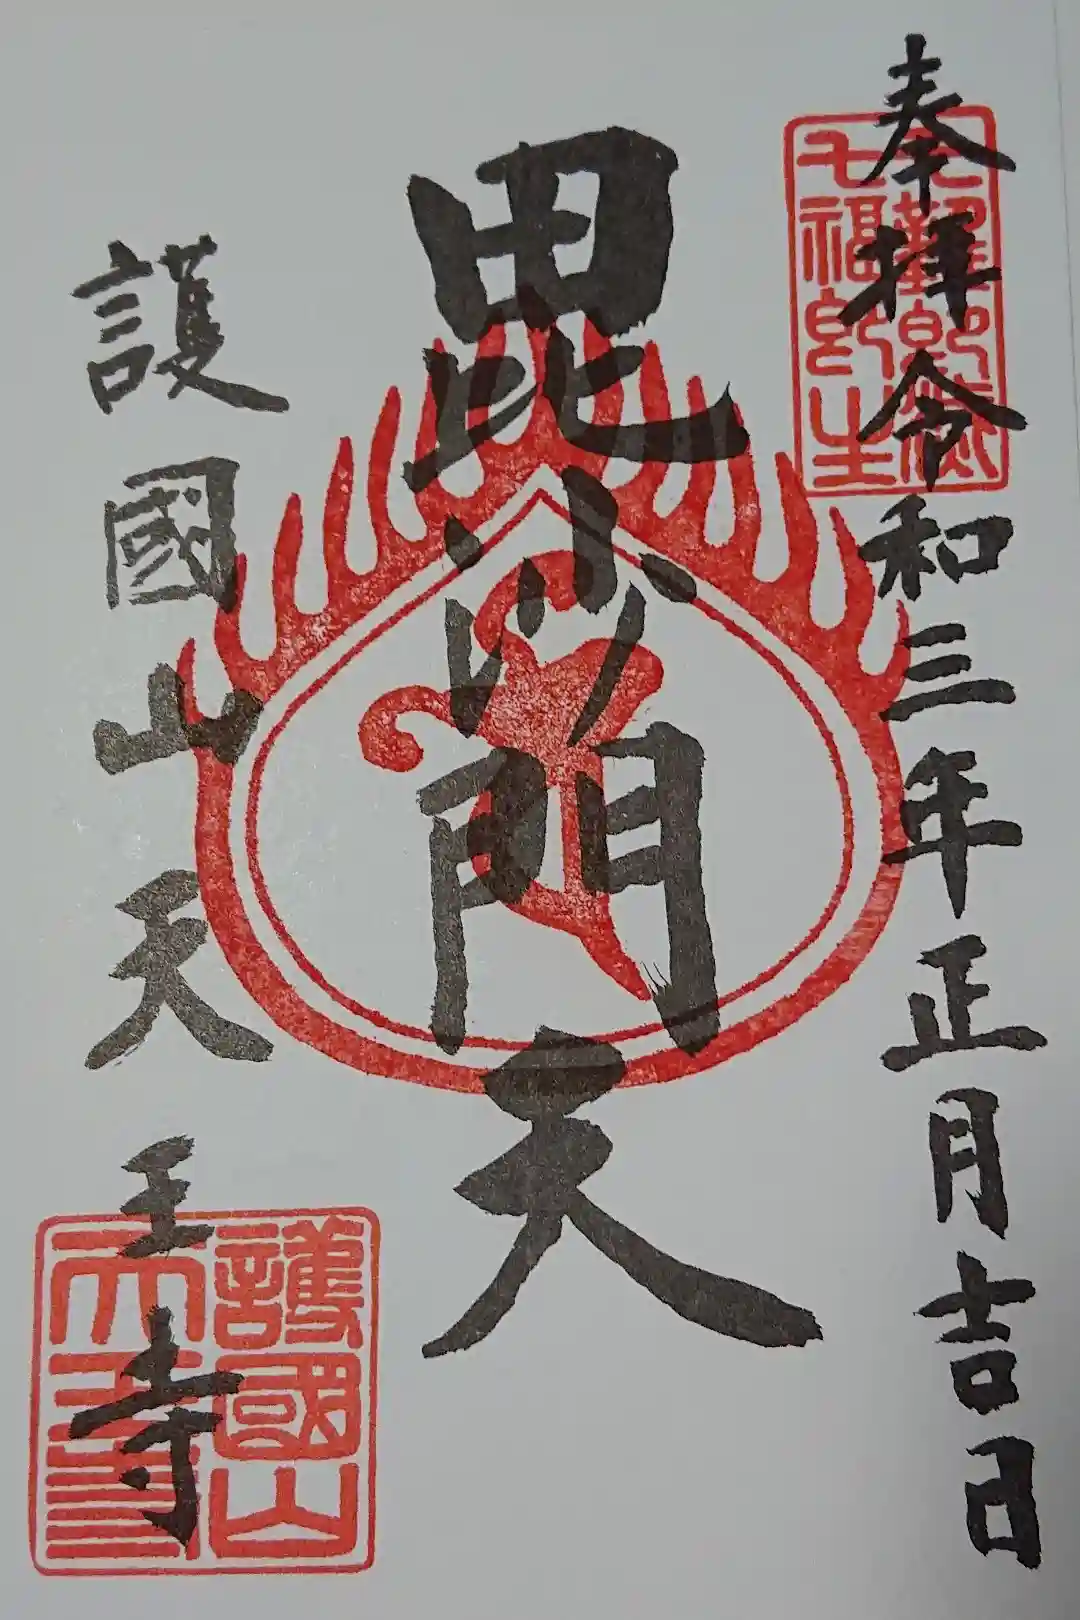 奉拝 令和三年正月吉日
毘沙門天
護國山天王寺
七福即生
護國山
天王寺